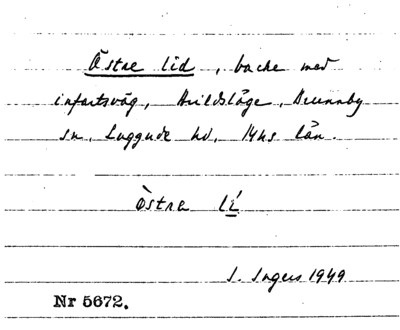 Östre lid, backe med
infartsväg, Arildsläge, Brunnby
sn, Luggude hd, Mhs län.
Östre lí
I. Ingers 1949
Nr 5672.